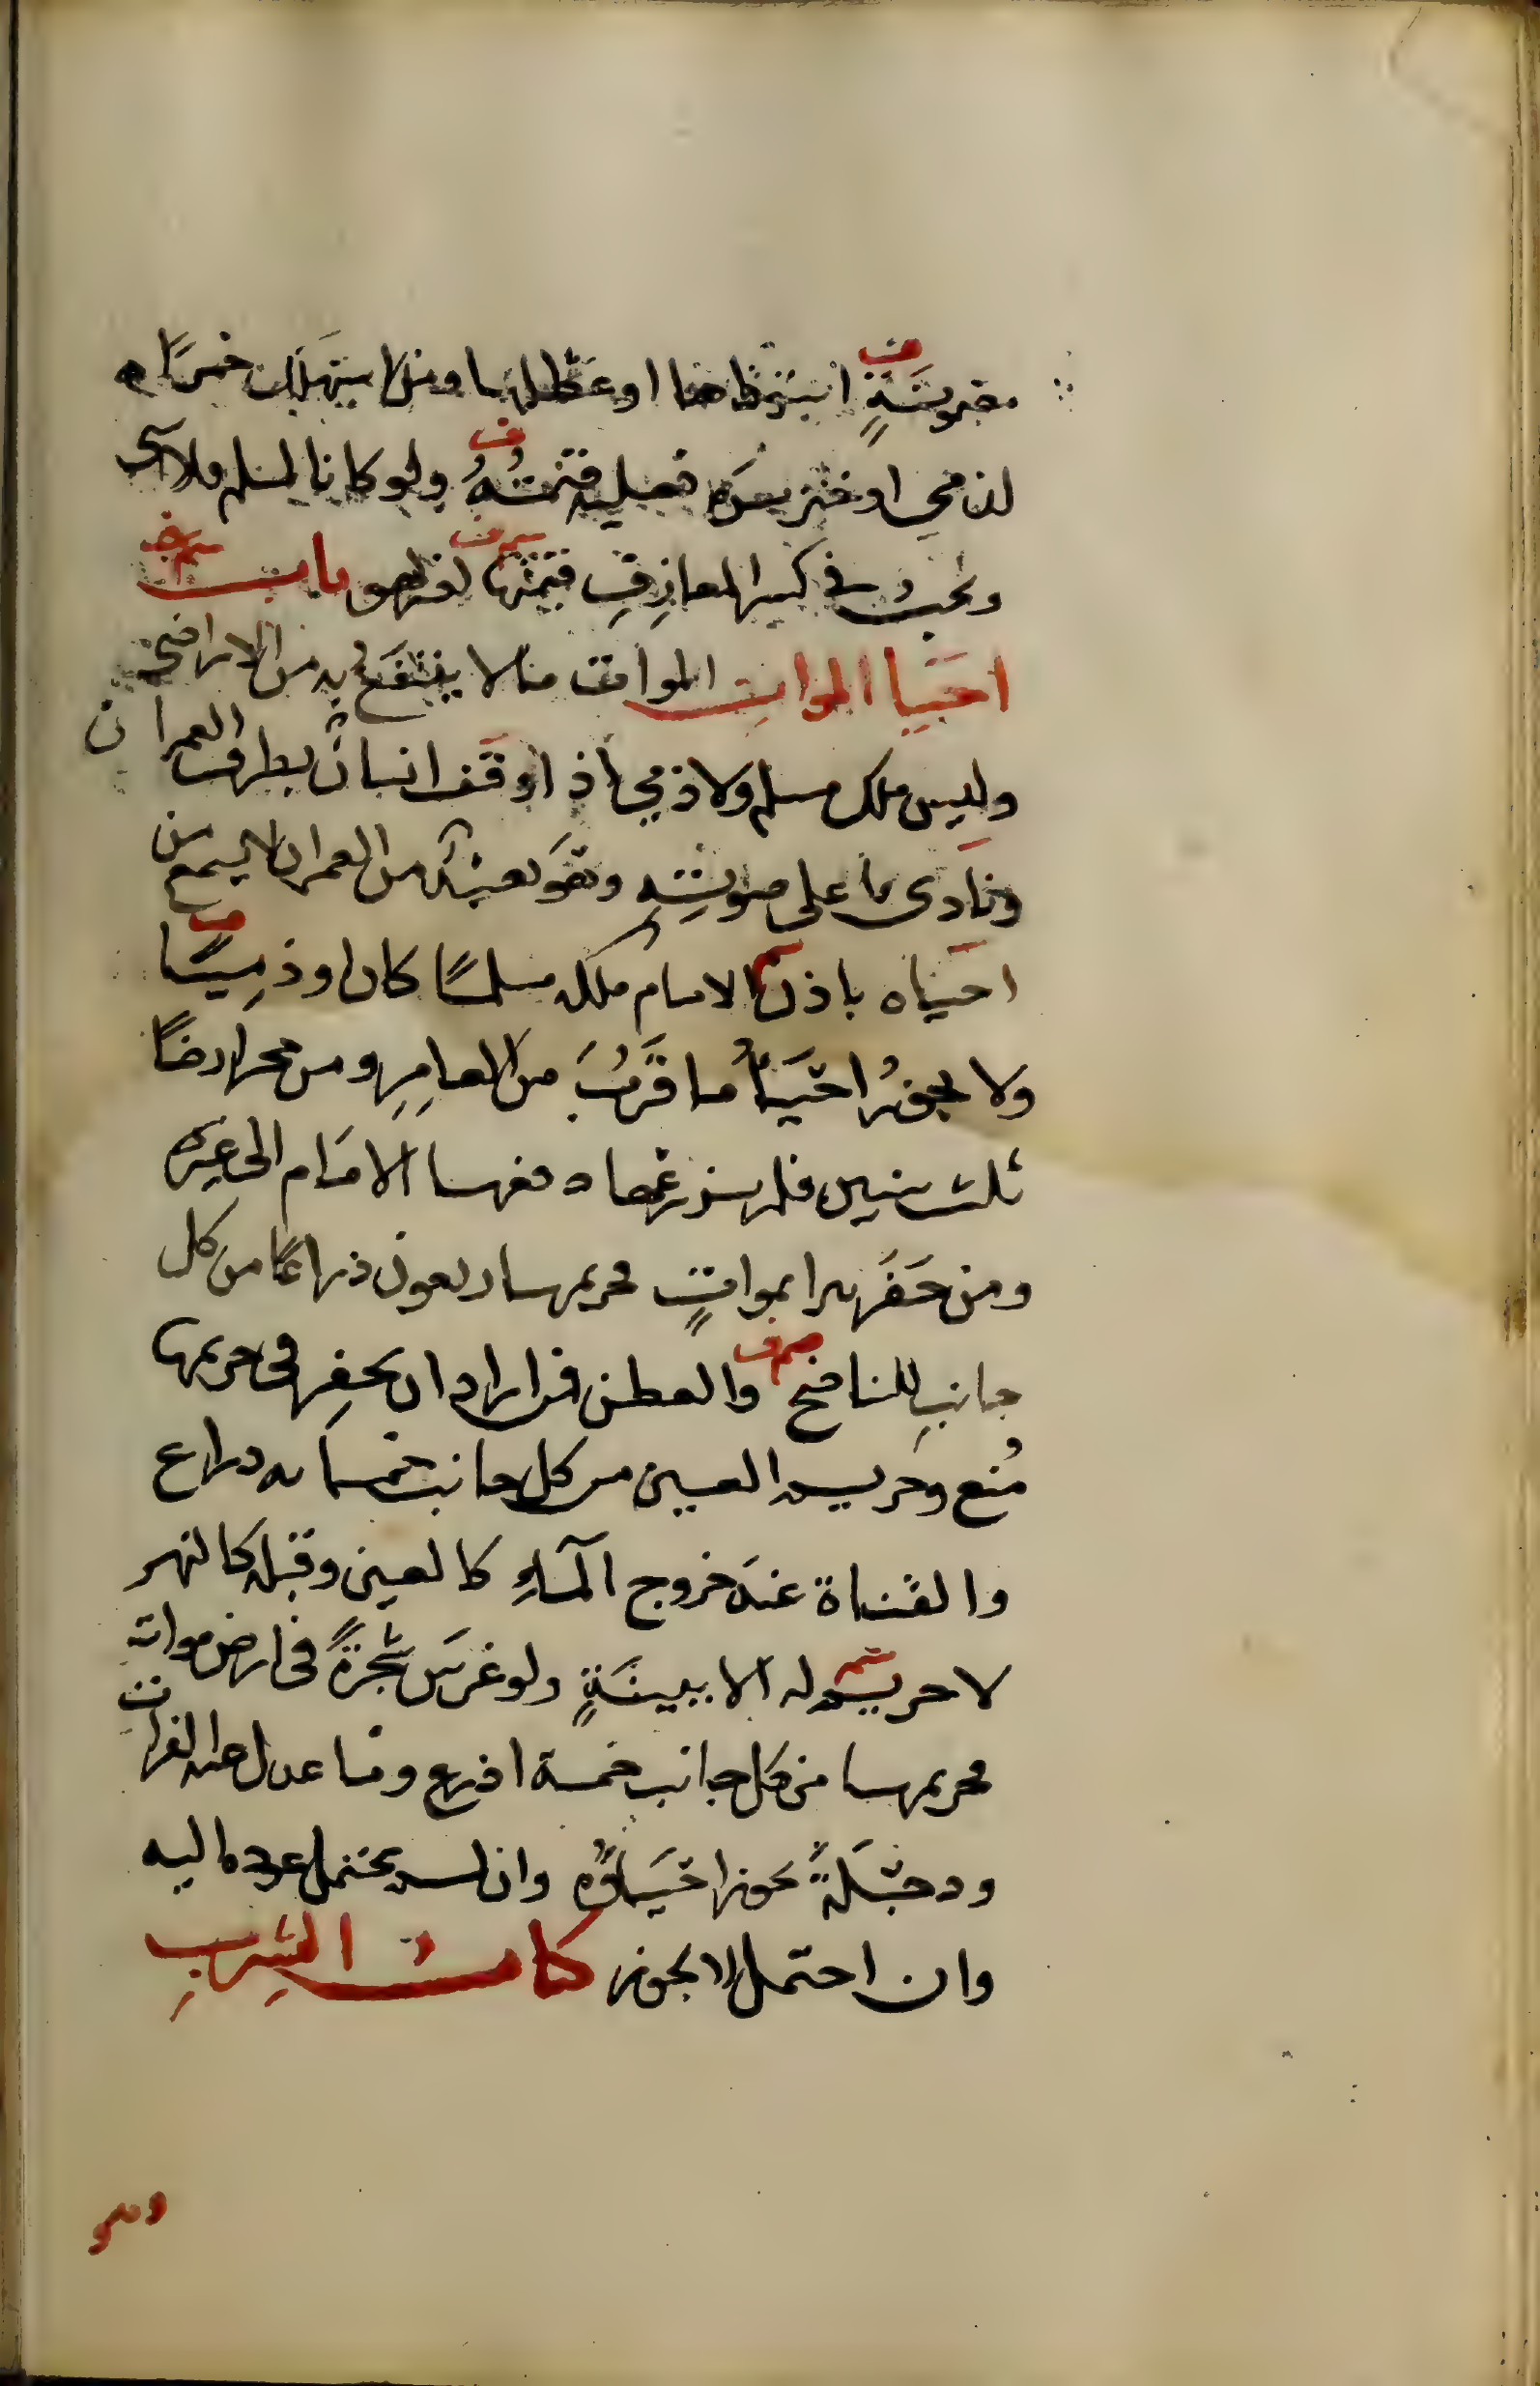 مغصوبةٍ استخدمها او عطلها ومن استهلك خمرًا
لذمي او خنزيره فعليه قيمتُهُ ولو كانا لمسلم فلا شي
ويجب في كسر المعازف قيمتها لغير لهو باب
احيا الموات الموات ما لا ينتفع به من الاراضي
وليس ملك مسلم ولا ذمي اذا وقف انسان بطرف العمران
ونادى باعلى صوتِهِ وهو بعيد من العمران لا يسمع من
احياه باذن الامام ملكه مسلمًا كان او ذميًا
ولا يجوز احياءُ ما قَرُبَ من العامِرِ ومن حجر ارضًا
ثلث سنين فلم يزرعها دفعها الامام الى غيره
ومن حَفَر بيرا بمواتٍ فحريمها اربعون ذراعًا من كل
جانبٍ للناضح والعطن فمن اراد ان يحفِر فى حريمها
مُنع وحريم العين من كل جانب خمسمايه ذراع
والقناة عند خروج المآءِ كالعين وقبله كالنهر
لا حريم له الا ببينةٍ ولو غرس شجرةً فى ارض موات
فحريمها من كل جانب خمسة اذرع وما عدل عنه الفرات
ودجلةُ يجوز احياؤُه وان لم يحتمل عوده اليه
وان احتمل لا يجوز كتاب الشِربِ